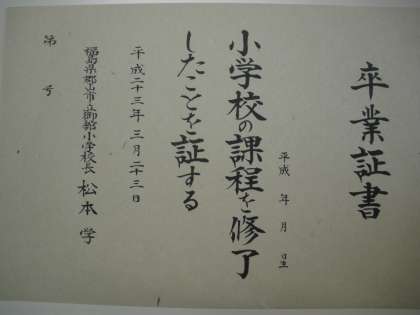 卒業証書
平成 年 月 日生
小学校の課程を修了
したことを証する
平成二十三年三月二十三日
福島県郡山市立御舘小学校長 松本 学
第 号